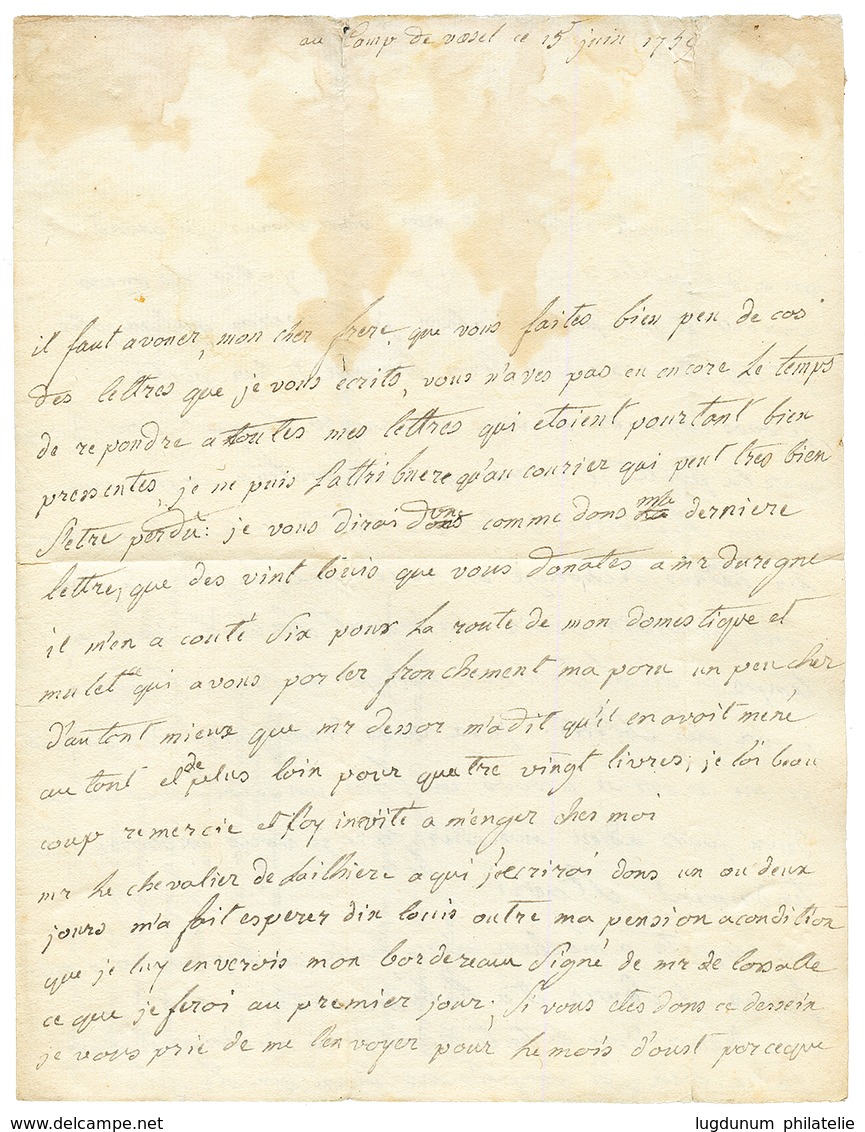 au Camp de vaesel ce 15 juin 1759
il faut avouer, mon cher frere, que vous faites bien peu de cas
des lettres que je vous ecrits, vous n'aves pas eu encore le temps
de repondre a toutes mes lettres qui etoient pourtant bien
pressentes, je ne puis l'attribuere qu'au courier qui peut tres bien
s'etre perdu: je vous dirai comme dans ma derniere
lettre, que des vint louis que vous donates a mr duregne
il m'en a couté six pour la route de mon domestique et
mulet ce qui a vous parler franchement ma paru un peu cher
d'autant mieux que mr dessor m'a dit qu'il en avoit mené
au tant et de plus loin pour quatre vingt livres; je l'ai beau
coup remercie et l'ay invité a menger ches moi
mr le chevalier de lailhiere a qui j'ecrirai dans un ou deux
jours m'a fait esperer dix louis outre ma pension a condition
que je luy enverois mon bordereau signé de mr de lassalle
ce que je ferai au premier jour; si vous etes dans ce dessein
je vous prie de me l'envoyer pour le mois d'oust parceque
www.delcampe.net
lugdunum philatelie